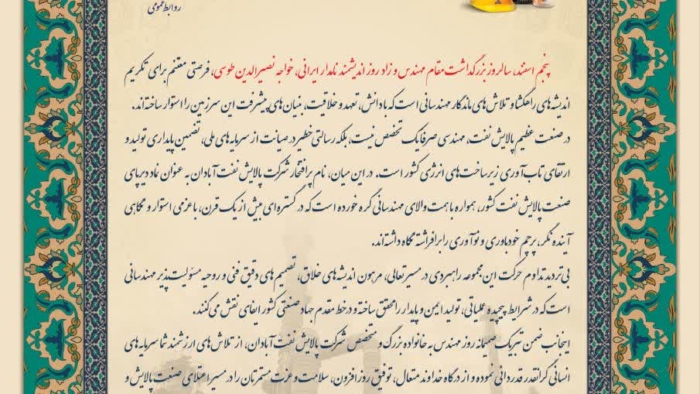 روابط عمومی
پنجم اسفند، سالروز بزرگداشت مقام مهندس و زادروز اندیشمند نامدار ایرانی، خواجه نصیرالدین طوسی، فرصتی مغتنم برای تکریم
اندیشه‌های راهگشا و تلاش‌های ماندگار مهندسانی است که با دانش، تعهد و خلاقیت، بنیان‌های پیشرفت این سرزمین را استوار ساخته‌اند.
در صنعت عظیم پالایش نفت، مهندسی صرفا یک تخصص نیست؛ بلکه رسالتی خطیر در صیانت از سرمایه‌های ملی، تضمین پایداری تولید و
ارتقای تاب‌آوری زیرساخت‌های انرژی کشور است. در این میان، نام پرافتخار شرکت پالایش نفت آبادان به عنوان نماد دیرپای
صنعت پالایش نفت کشور، همواره با همت والای مهندسانی گره خورده است که در گستره‌ای بیش از یک قرن، با عزمی استوار و نگاهی
آینده نگر، پرچم خودباوری و نوآوری را برافراشته نگاه داشته‌اند.
بی‌تردید تداوم حرکت این مجموعه راهبردی در مسیر تعالی، مرهون اندیشه‌های خلاق، تصمیم‌های دقیق فنی و روحیه مسئولیت‌پذیر مهندسانی
است که در شرایط پیچیده عملیاتی، تولید ایمن و پایدار را محقق ساخته و در خط مقدم جهاد صنعتی کشور ایفای نقش می‌کنند.
اینجانب ضمن تبریک صمیمانه روز مهندس به خانواده بزرگ و متخصص شرکت پالایش نفت آبادان، از تلاش‌های ارزشمند شما سرمایه‌های
انسانی گرانقدر قدردانی نموده و از درگاه خداوند متعال، توفیق روزافزون، سلامت و عزت مستمرتان را در مسیر اعتلای صنعت پالایش و